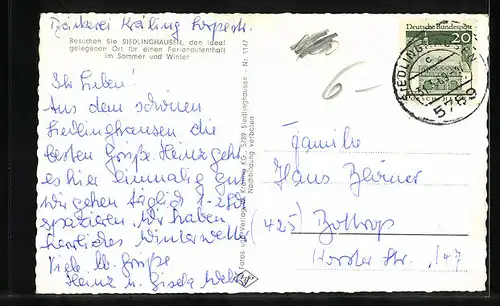 Bäckerei Kräling
Besuchen Sie SIEDLINGHAUSEN, den ideal
gelegenen Ort für einen Ferienaufenthalt
im Sommer und Winter
Ihr Lieben!
Aus dem schönen
Siedlinghausen die
besten Grüße. Heinz geht
es hier einmalig gut
wir gehen täglich 1-2 Std
spazieren. Wir haben
herrliches Winterwetter
Viele lb. Grüße
Heinz u. Gisela
Fotos und Verlag Kräling KG, 5789 Siedlinghausen Nr. 1147
Nachbildung verboten
6-
Deutsche Bundespost
20
SIEDLINGHAUSEN
5789
Familie
Hans
(425) Bottrop
Horster Str. 147